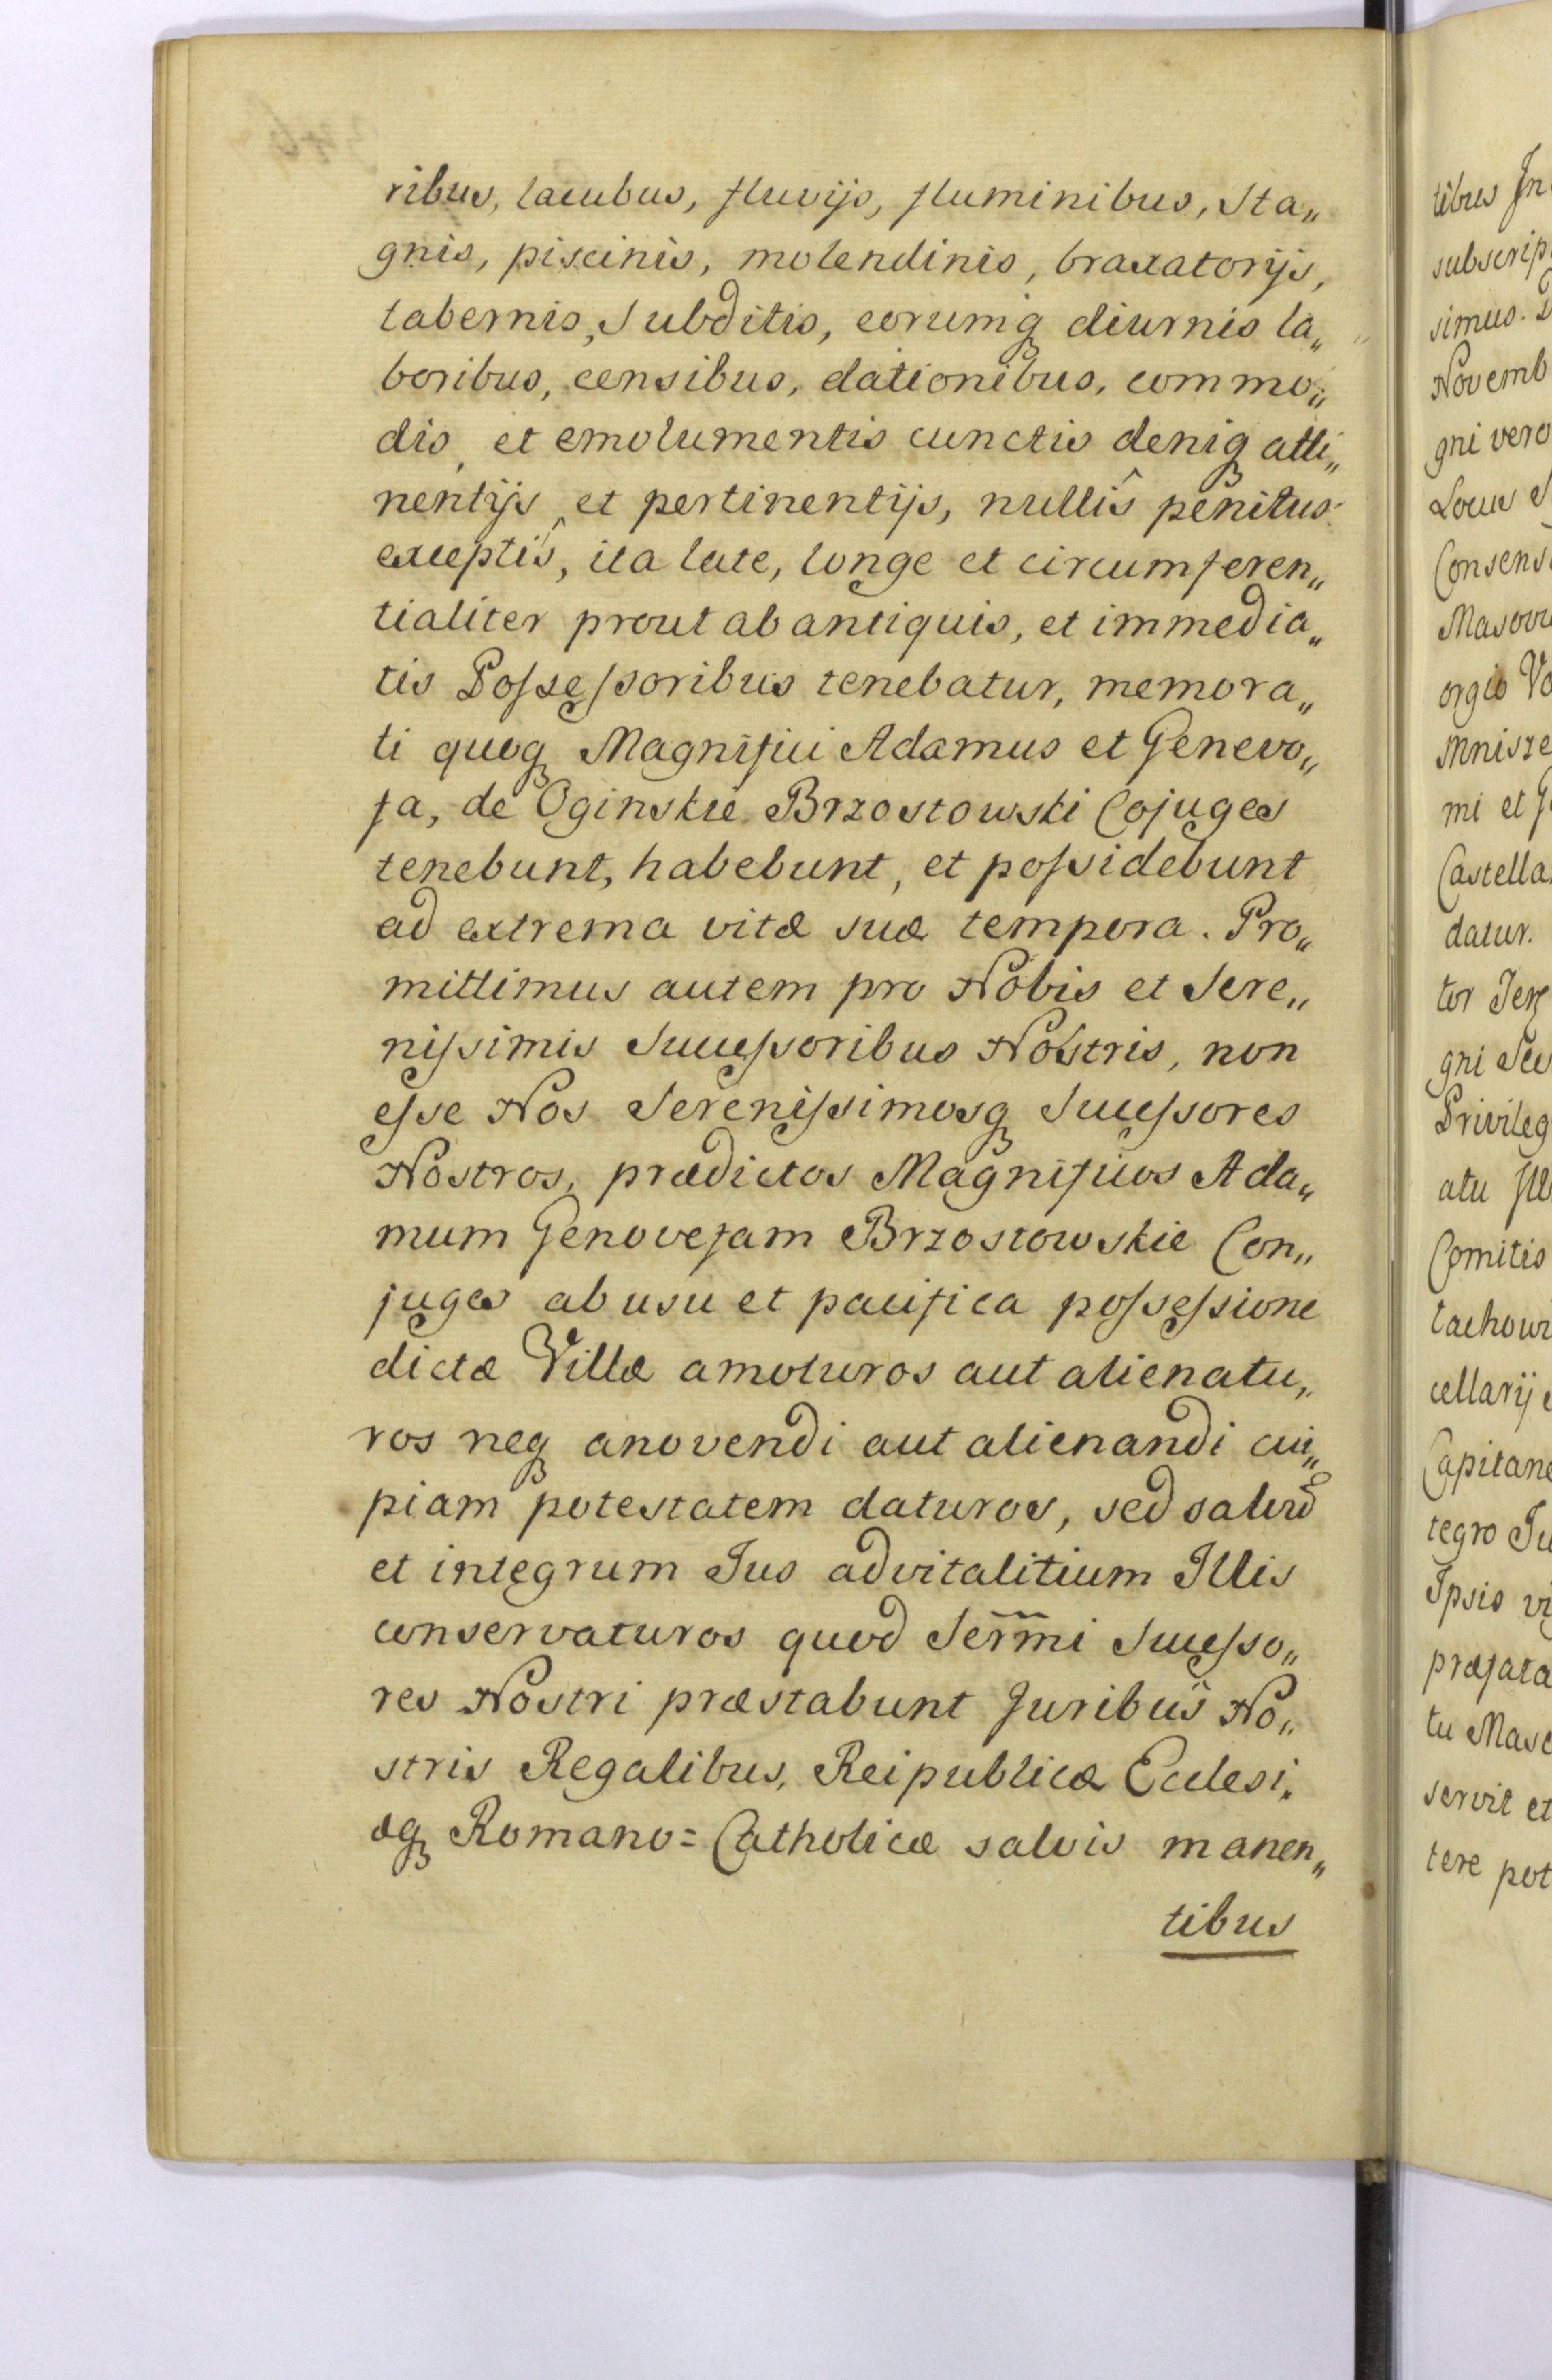 ribus, lacubus, fluvijs, fluminibus, Sta„
gnis, piscinis, molendinis, braxatorijs,
tabernis, Subditis, eorumq́ue diurnis la„
boribus, censibus, dationibus, commo„
dis, et emolumentis cunctis deniq́ue atti„
nentijs et pertinentijs, nullîs penitus
exceptîs, ita late, longe et circumferen„
tialiter prout ab antiquis, et immedia„
tis Possessoribus tenebatur, memora„
ti quoq́ue Magnifici Adamus et Genevo„
fa, de Oginskie Brzostowski Cojuges
tenebunt, habebunt, et possidebunt
ad extrema vitæ suæ tempora. Pro„
mittimus autem pro Nobis et Sere„
nissimis Successoribus Nostris, non
esse Nos Serenissimosq́ue Successores
Nostros, prædictos Magnificos Ada„
mum Genovefam Brzostowskie Con„
juges ab usu et pacifica possessione
dictæ Villæ amoturos aut alienatu„
ros neq́ue anovendi aut alienandi cui„
piam potestatem daturos, sed salvũ
et integrum Jus advitalitium Illis
conservaturos quod Ser̃m̃i Successo„
res Nostri præstabunt Juribus No„
stris Regalibus, Reipublicæ Ecclesi„
æq́ue Romano=Catholicæ salvis manen„
tibus
tibus In
subscrip
simus. D
Novemb
gni vero
Locus S
Consens
Masovi
orgio Va
Mnisze
mi et G
Castella
datur.
tor Terr
gni
Privileg
atu Ill
Comitis
tachow
cellarij
Capitane
tegro Ju
Ipsis vi
præfata
tu Maso
servit et
tere pot